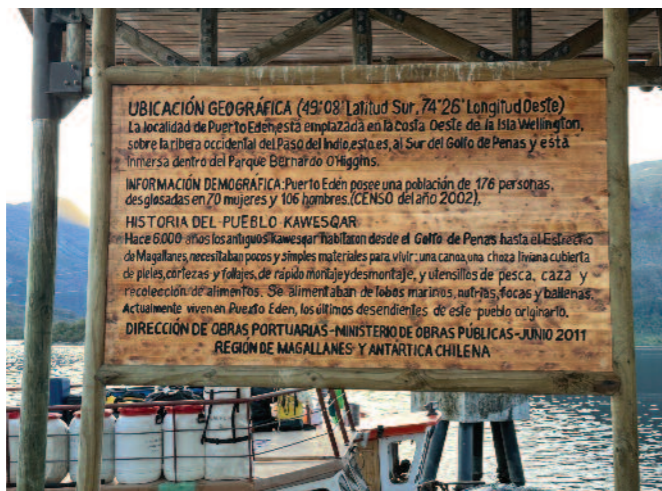 UBICACIÓN GEOGRÁFICA (49°08' Latitud Sur, 74°26' Longitud Oeste)
La localidad de Puerto Eden, está emplazada en la costa Oeste de la Isla Wellington,
sobre la ribera occidental del Paso del Indio, esto es, al Sur del Golfo de Penas y está
inmersa dentro del Parque Bernardo O'Higgins.
INFORMACIÓN DEMOGRÁFICA: Puerto Edén posee una población de 176 personas,
desglosadas en 70 mujeres y 106 hombres. (CENSO del año 2002).
HISTORIA DEL PUEBLO KAWESQAR
Hace 6.000 años los antiguos kawesqar habitaron desde el Golfo de Penas hasta el Estrecho
de Magallanes, necesitaban pocos y simples materiales para vivir: una canoa, una choza liviana cubierta
de pieles, cortezas y follajes, de rápido montaje y desmontaje, y utensillos de pesca, caza y
recolección de alimentos. Se alimentaban de lobos marinos, nutrias, focas y ballenas.
Actualmente viven en Puerto Eden, los últimos desendientes de este pueblo originario.
DIRECCIÓN DE OBRAS PORTUARIAS-MINISTERIO DE OBRAS PÚBLICAS-JUNIO 2011
REGIÓN DE MAGALLANES Y ANTÁRTICA CHILENA